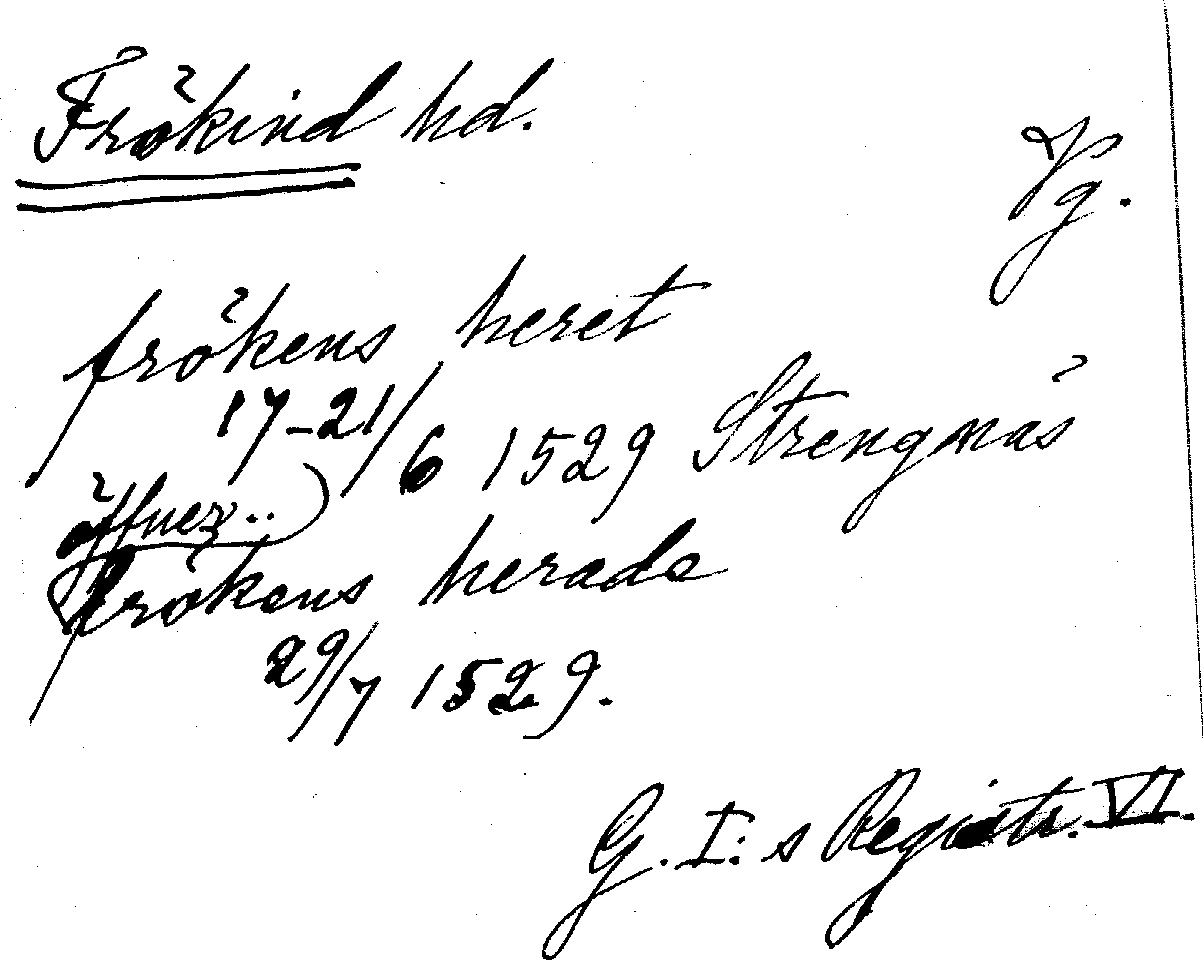 Frökind hd.
Vg.
frökens heret
17-21/6 1529 Strengnäs
öffuer..)
frökens herade
29/7 1529.
G. I:s Registr. VI.